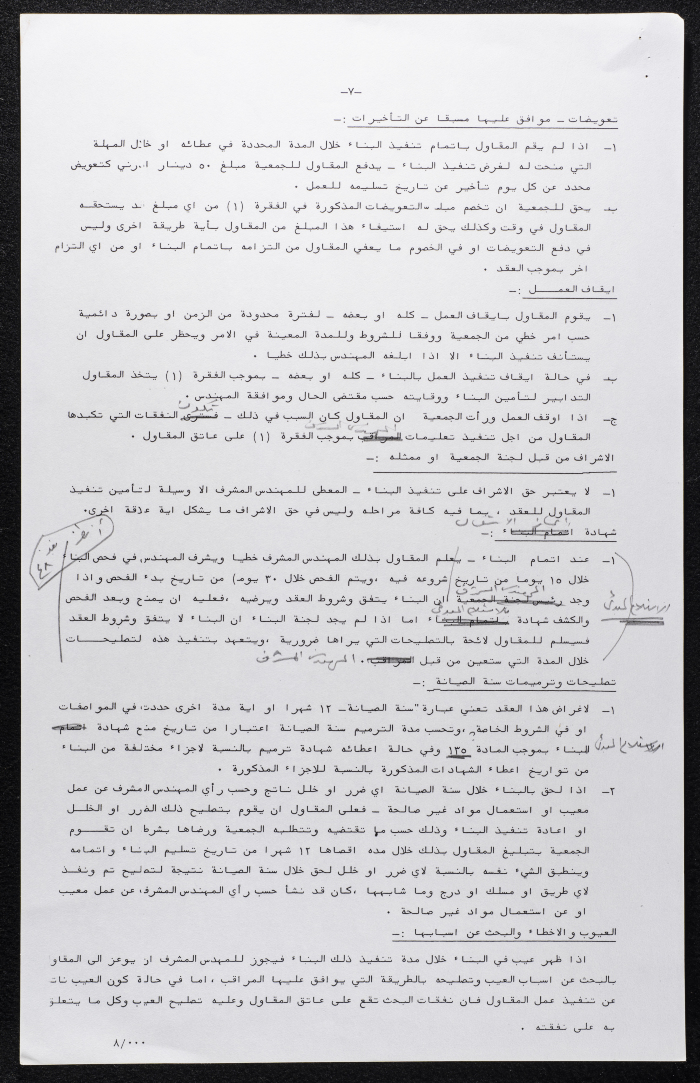 -٧-
تعويضات - موافق عليها مسبقا عن التأخيرات :-
١- اذا لم يقم المقاول باتمام تنفيذ البناء خلال المدة المحددة في عطائه او خلال المهلة
التي منحت له لغرض تنفيذ البناء - يدفع المقاول للجمعية مبلغ ٥٠ دينار اردني كتعويض
محدد عن كل يوم تأخير عن تاريخ تسليمه للعمل .
ب- يحق للجمعية ان تخصم مبلغ التعويضات المذكورة في الفقرة (١) من اي مبلغ قد يستحقه
المقاول في وقت وكذلك يحق له استيفاء هذا المبلغ من المقاول بأية طريقة اخرى وليس
في دفع التعويضات او في الخصوم ما يعفي المقاول من التزامه باتمام البناء او من اي التزام
اخر بموجب العقد .
ايقاف العمــل :-
١- يقوم المقاول بايقاف العمل - كله او بعضه - لفترة محدودة من الزمن او بصورة دائمية
حسب امر خطي من الجمعية ووفقا للشروط وللمدة المعينة في الامر ويحظر على المقاول ان
يستأنف تنفيذ البناء الا اذا ابلغه المهندس بذلك خطيا .
ب- في حالة ايقاف تنفيذ العمل بالبناء - كله او بعضه - بموجب الفقرة (١) يتخذ المقاول
التدابير لتأمين البناء ووقايته حسب مقتضى الحال وموافقة المهندس .
تكون
ج- اذا اوقف العمل ورأت الجمعية ان المقاول كان السبب في ذلك - فسترى النفقات التي تكبدها
المهندس المشرف
المقاول من اجل تنفيذ تعليمات المراقب بموجب الفقرة (١) على عاتق المقاول .
الاشراف من قبل لجنة الجمعية او ممثله :-
١- لا يعتبر حق الاشراف على تنفيذ البناء - المعطى للمهندس المشرف الا وسيلة لتأمين تنفيذ
المقاول للعقد ، بما فيه كافة مراحله وليس في حق الاشراف ما يشكل اية علاقة اخرى.
انجاز الاشغال
شهادة اتمام البناء :-
أنظر بند ٤٨
١- عند اتمام البناء - يعلم المقاول بذلك المهندس المشرف خطيا ويشرف المهندس في فحص البناء
خلال ١٥ يوما من تاريخ شروعه فيه ،ويتم الفحص خلال ٣٠ يوما من تاريخ بدء الفحص واذا
المهندس المشرف
وجد رئيس لجنة الجمعية ان البناء يتفق وشروط العقد ويرضيه ،فعليه ان يمنح وبعد الفحص
الاستلام المبدئي
للاستلام المبدئي
والكشف شهادة باتمام البناء اما اذا لم يجد لجنة البناء ان البناء لا يتفق وشروط العقد
فسيسلم للمقاول لائحة بالتصليحات التي يراها ضرورية ،ويتعهد بتنفيذ هذه لتصليحات
خلال المدة التي ستعين من قبل المراقب. المهندس المشرف
تصليحات وترميمات سنة الصيانة :-
١- لاغراض هذا العقد تعني عبارة "سنة الصيانة- ١٢ شهرا او اية مدة اخرى حددت في المواصفات
او في الشروط الخاصة ،وتحسب مدة الترميم سنة الصيانة اعتبارا من تاريخ منح شهادة اتمام
الاستلام المبدئي
البناء بموجب المادة ١٣٥ وفي حالة اعطائه شهادة ترميم بالنسبة لاجزاء مختلفة من البناء
من تواريخ اعطاء الشهادات المذكورة بالنسبة للاجزاء المذكورة .
٢- اذا لحق بالبناء خلال سنة الصيانة اي ضرر او خلل ناتج وحسب رأي المهندس المشرف عن عمل
معيب او استعمال مواد غير صالحة - فعلى المقاول ان يقوم بتصليح ذلك الضرر او الخلل
او اعادة تنفيذ البناء وذلك حسب ما تقتضيه وتتطلبه الجمعية ورضاها بشرط ان تقــوم
الجمعية بتبليغ المقاول بذلك خلال مده اقصاها ١٢ شهرا من تاريخ تسليم البناء واتمامه
وينطبق الشيء نفسه بالنسبة لاي ضرر او خلل لحق خلال سنة الصيانة نتيجة لتصليح تم ونفذ
لاي طريق او مسلك او درج وما شابهها ،كان قد نشأ حسب رأي المهندس المشرف، عن عمل معيب
او عن استعمال مواد غير صالحة .
العيوب والاخطاء والبحث عن اسبابها :-
اذا ظهر عيب في البناء خلال مدة تنفيذ ذلك البناء فيجوز للمهدس المشرف ان يوعز الى المقاو
بالبحث عن اسباب العيب وتصليحه بالطريقة التي يوافق عليها المراقب ،اما في حالة كون العيب نات
عن تنفيذ عمل المقاول فان نفقات البحث تقع على عاتق المقاول وعليه تصليح العيب وكل ما يتعلق
به على نفقته .
٨/٠٠٠